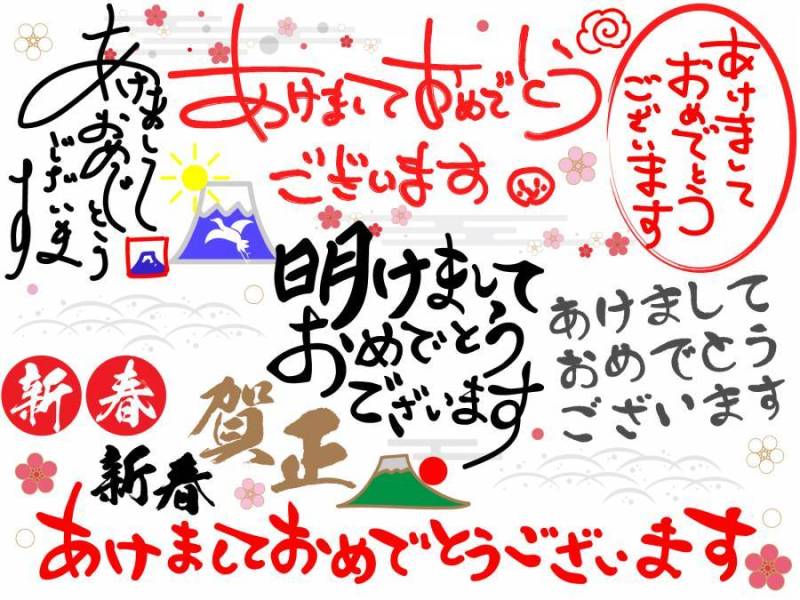 あけまして
おめでとう
ございます
あけましておめでとう
ございます
あけまして
おめでとう
ございます
明けまして
おめでとう
ございます
あけまして
おめでとう
ございます
新春
賀正
新春
あけましておめでとうございます